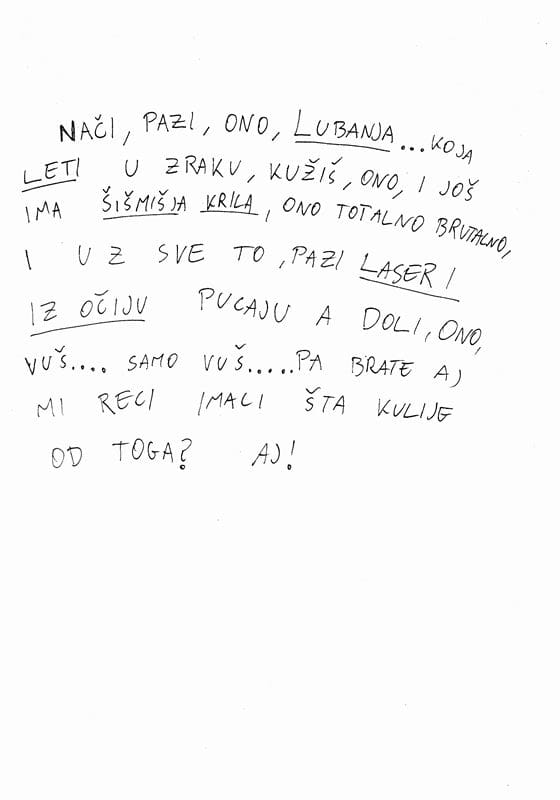 NAČI, PAZI, ONO, LUBANJA...KOJA
LETI U ZRAKU, KUŽIŠ, ONO, I JOŠ
IMA ŠIŠMIŠJA KRILA, ONO TOTALNO BRUTALNO,
I UZ SVE TO, PAZI LASERI
IZ OČIJU PUCAJU A DOLI, ONO,
VUŠ.... SAMO VUŠ.....PA BRATE AJ
MI RECI IMALI ŠTA KULIJE
OD TOGA? AJ!